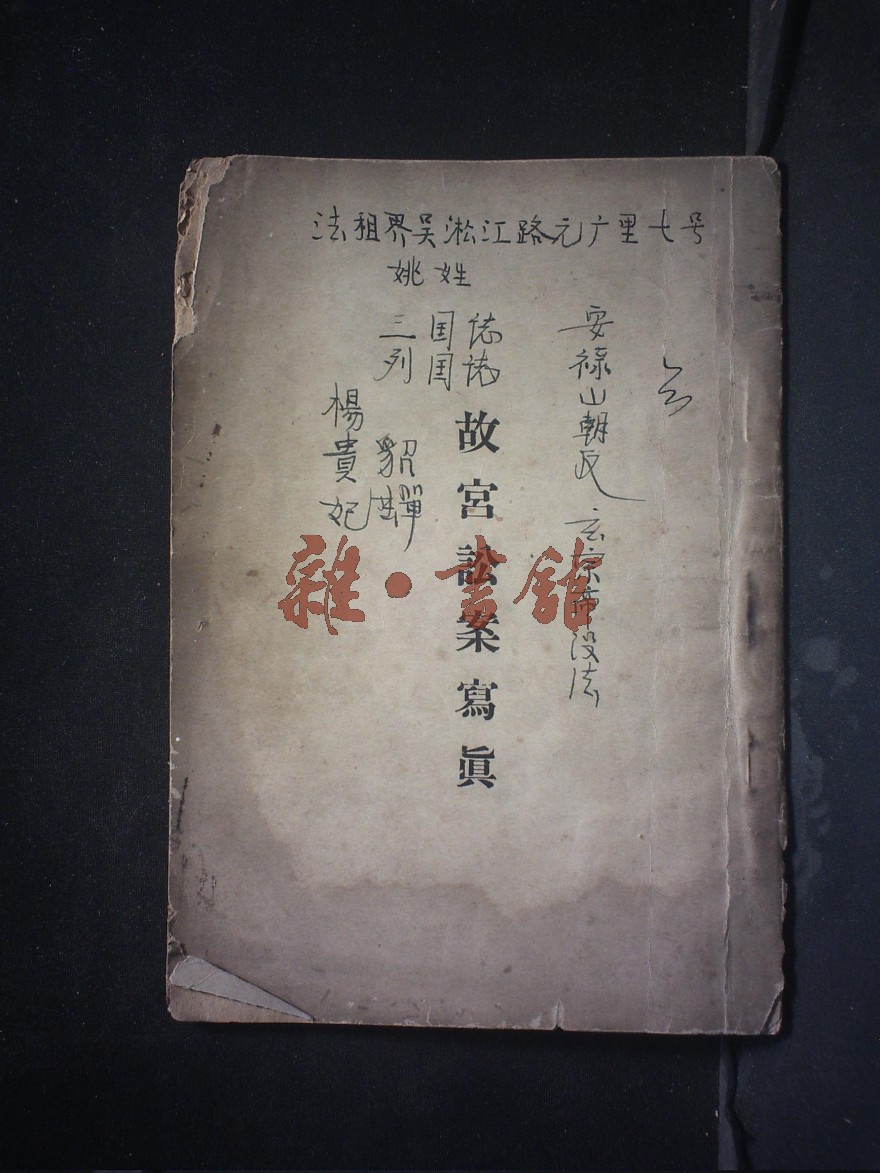 法租界吴淞江路元广里七号
姚姓
安禄山朝反 玄宗帝没法
誌誌
国国
三列
貂
蟬
楊貴妃
故宮訟案寫眞
雜·書館